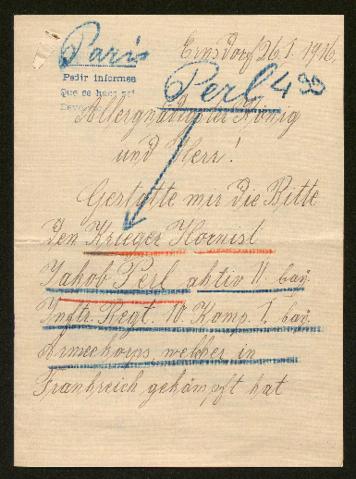 Paris
Ernsdorf 26.1.1916.
Pedir informes
Que se haga
Perl 499
Allergnädigster König
und Herr!
Gestatte mir die Bitte
den Krieger Hornist
Jakob Perl aktiv 11 bay.
Inftr. Regt. 10 Komp. 1. bay.
Armeekorps welcher in
Frankreich gekämpft hat